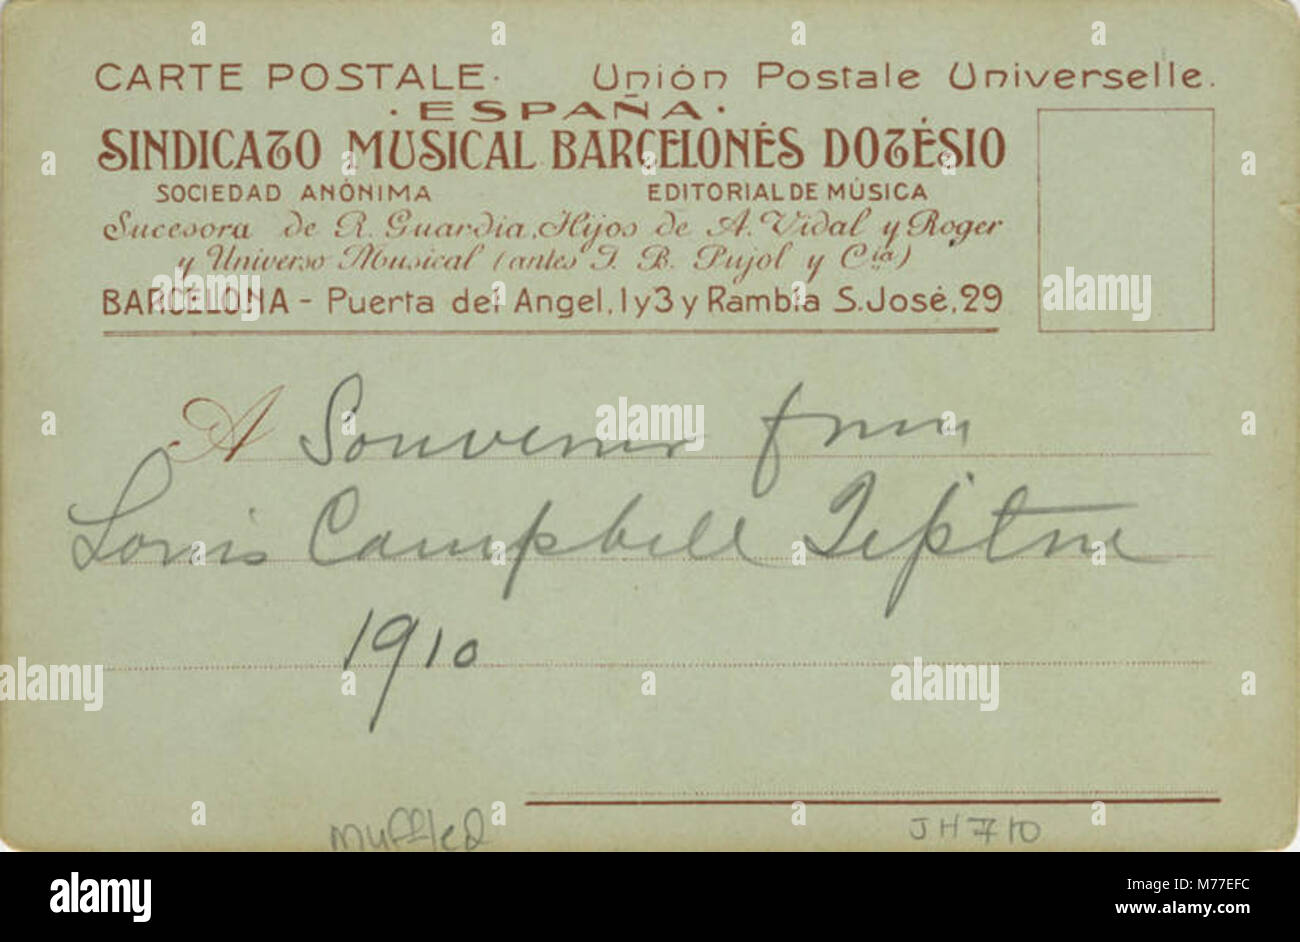 CARTE POSTALE· Unión Postale Universelle.
· ESPAÑA ·
SINDICATO MUSICAL BARCELONÉS DOTÉSIO
SOCIEDAD ANÓNIMA EDITORIAL DE MÚSICA
Sucesora de R. Guardia, Hijos de A. Vidal y Roger
y Universo Musical (antes J. B. Pujol y Cía.)
BARCELONA - Puerta del Angel, 1 y 3 y Rambla S. José, 29
A Souvenir from
Louis Campbell Tipton
1910
muffled JH710
alamy
alamy
Image ID: M77EFC
www.alamy.com